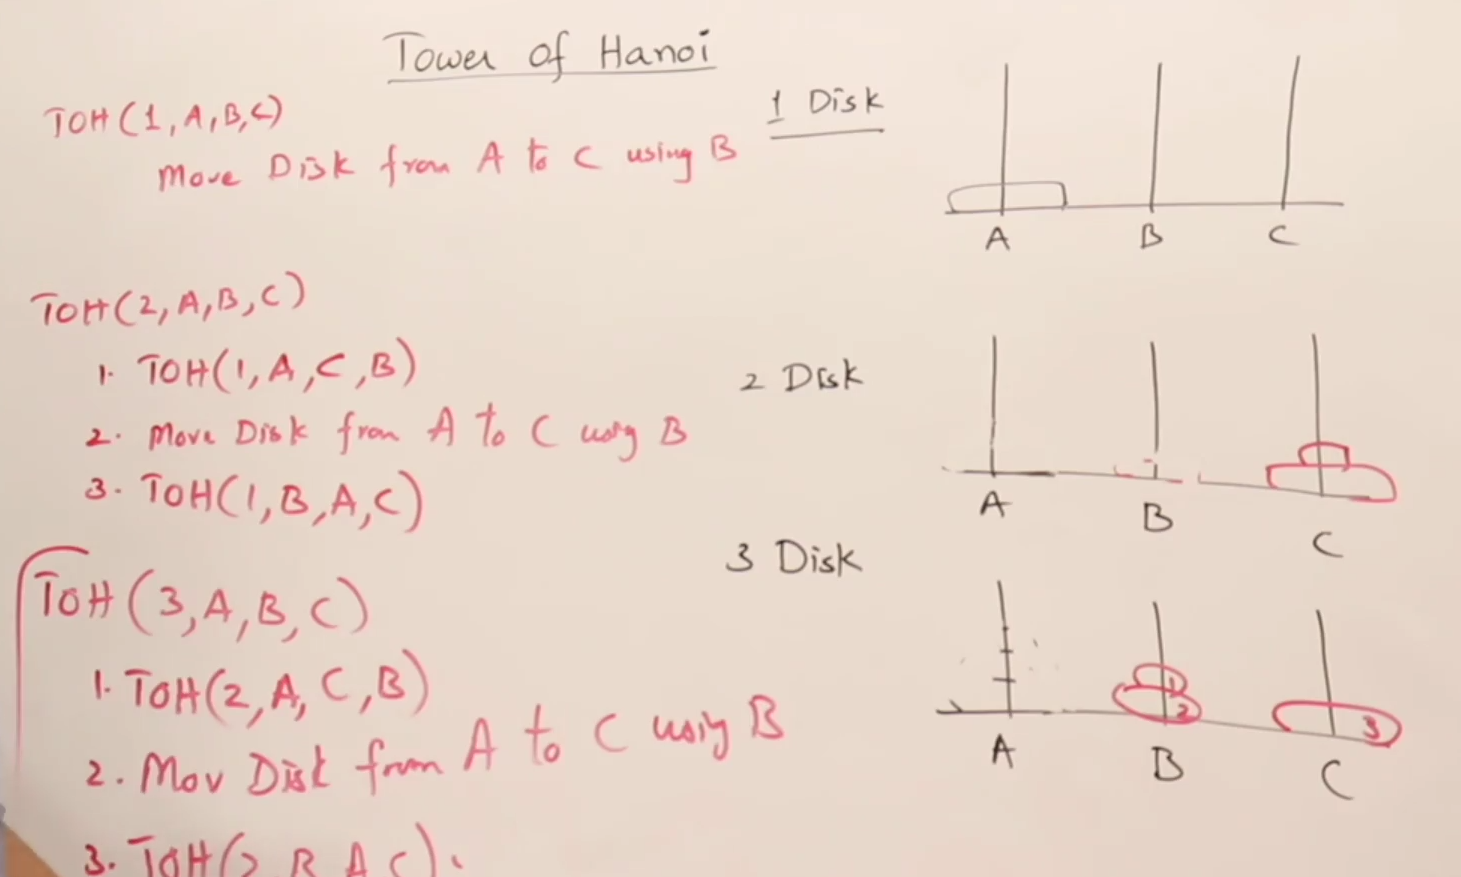 Tower of Hanoi
TOH(1,A,B,C)
Move Disk from A to C using B
1 Disk
A B C
TOH(2,A,B,C)
1. TOH(1,A,C,B)
2. Move Disk from A to C using B
3. TOH(1,B,A,C)
2 Disk
A B C
TOH(3,A,B,C)
1. TOH(2,A,C,B)
2. Mov Disk from A to C using B
3. TOH(2,B,A,C).
3 Disk
1
2 3
A B C